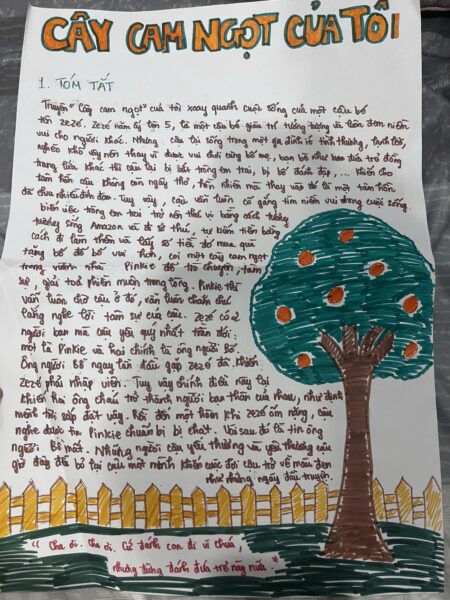 CÂY CAM NGỌT CỦA TÔI
1. TÓM TẮT
Truyện "Cây cam ngọt" của tôi xoay quanh cuộc sống của một cậu bé
tên Zezé. Zezé năm ấy lên 5, là một cậu bé giàu trí tưởng tượng và luôn đem niềm
vui cho người khác. Nhưng cậu lại sống trong một gia đình vì tình thương,
nghèo khổ vậy nên thay vì được vui chơi cùng bố mẹ, bạn bè như bao đứa trẻ đồng
trang lứa khác thì cậu lại bị bắt trông em trai, bị bố đánh đập, ... khiến cho
tâm hồn cậu không còn ngây thơ, hồn nhiên mà thay vào đó là một tâm hồn
đã chịu nhiều đớn đau. Tuy vậy, cậu vẫn luôn cố gắng tìm niềm vui trong cuộc sống.
biến việc trông em trai trở nên thú vị bằng cách tưởng
tượng sông Amazon và đi sở thú, tự kiếm tiền bằng
cách đi làm thêm và lấy số tiền đó mua quà
tặng bố để bố vui hơn, coi một cây cam ngọt
trong vườn nhà Pinkie để trò chuyện, tâm
sự, giải toả nhiềm muộn trong lòng. Pinkie thì
vẫn luôn chờ cậu ở đó, vẫn luôn chăm chú
lắng nghe lời tâm sự của cậu. Zezé có 2
người bạn mà cậu yêu quý nhất trần đời:
một là Pinkie và hai chính là ông người Bồ.
Ông người Bồ ngay lần đầu gặp Zezé đã khiến
Zezé phải nhập viện. Tuy vậy chính điều này lại
khiến hai ông cháu trở thành người bạn thân của nhau, như định
mệnh trời sắp đặt vậy. Rồi đến một hôm khi Zezé ốm nặng, cậu
nghe được tin Pinkie chuẩn bị bị chặt. Và sau đó là tin ông
người Bồ mất. Những người cậu yêu thương và yêu thương cậu
giờ đây đã bỏ lại cậu một mình khiến cuộc đời cậu trở về màu đen
như những ngày đầu truyện.
"Cha ơi. Cha ơi. Cứ đánh con đi vì chúa,
nhưng đừng đánh đứa trẻ này nữa."